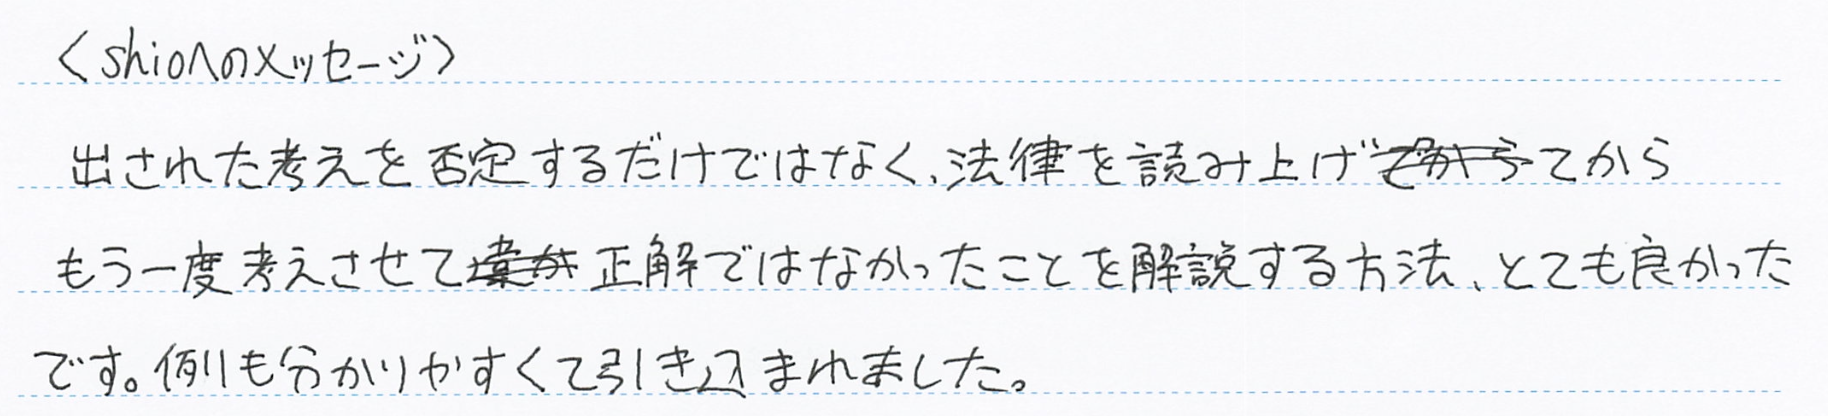 〈shioへのメッセージ〉
出された考えを否定するだけではなく、法律を読み上げてから
もう一度考えさせて正解ではなかったことを解説する方法、とても良かった
です。例も分かりやすくて引き込まれました。